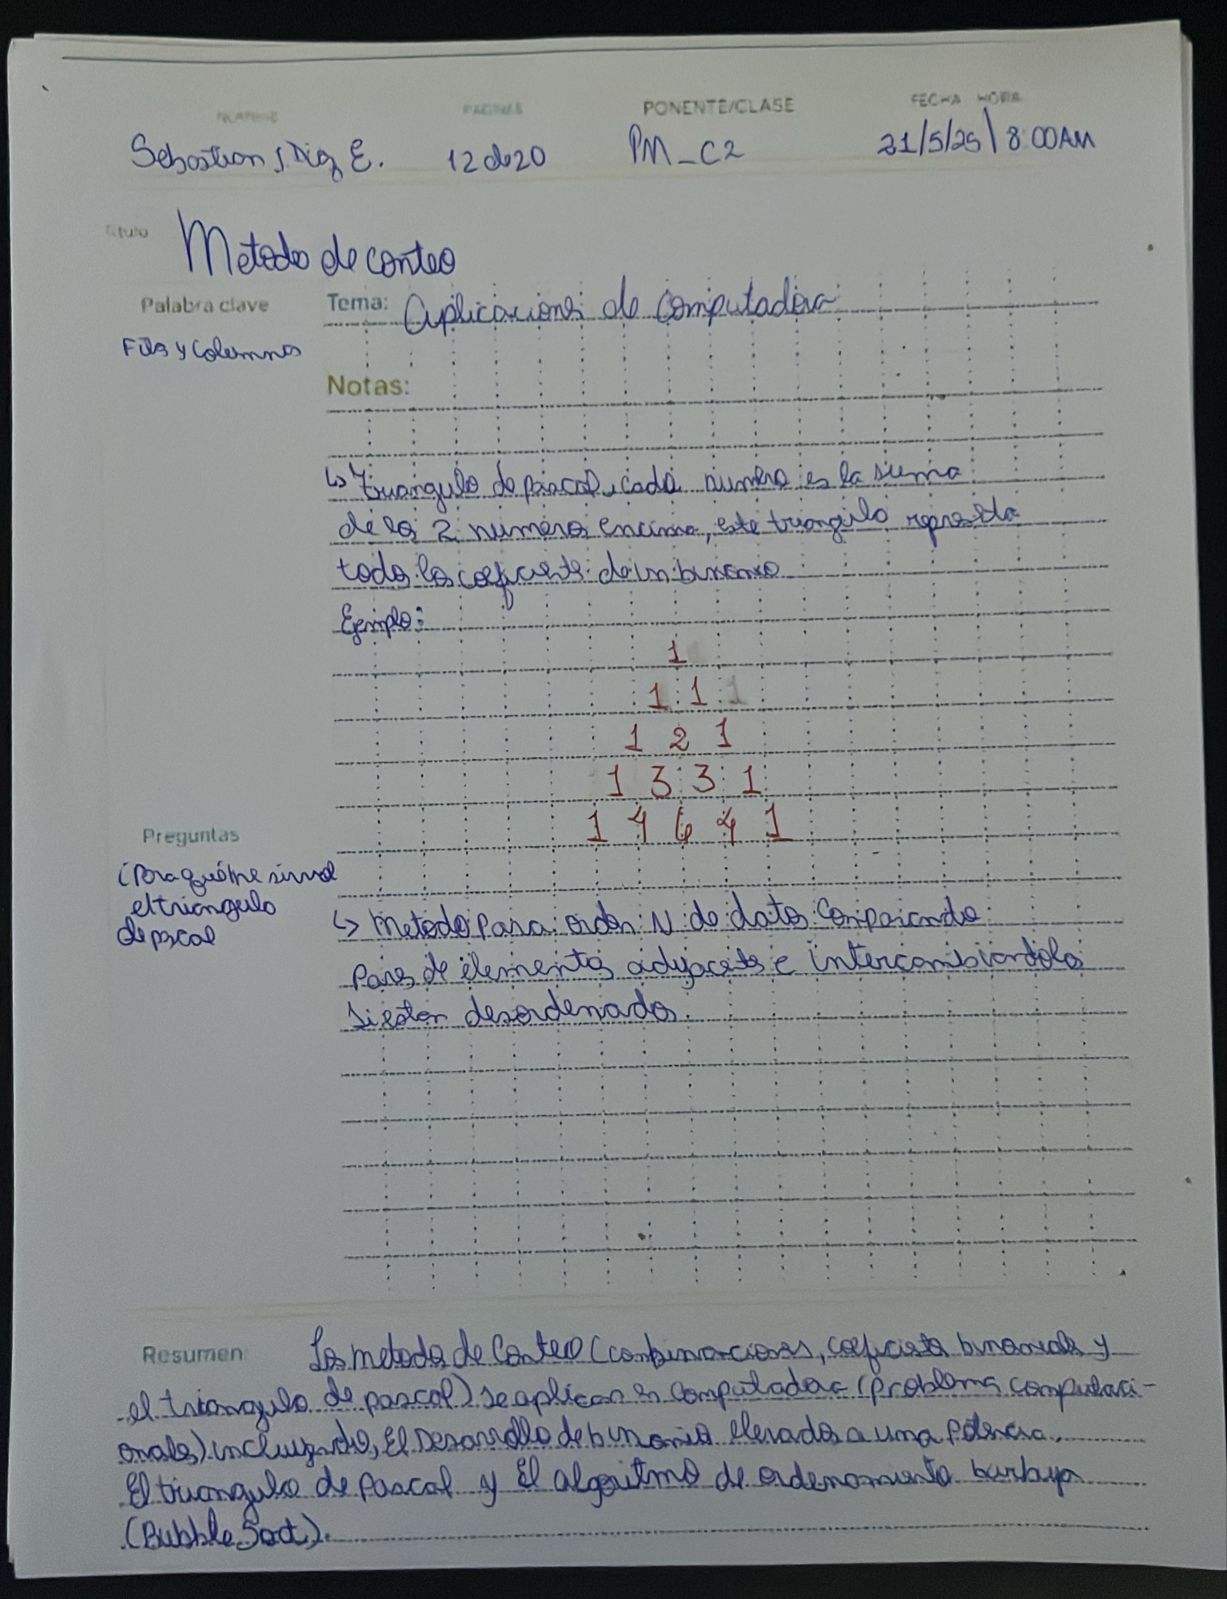 NOMBRE PAGINAS PONENTE/CLASE FECHA HORA
Sebastian E. 12 de 20 PM_C2 21/5/25 | 8:00AM
Titulo Metodo de conteo
Palabra clave Tema: Aplicaciones de computadora
Filas y Columnas
Notas:
↳ triangulo de pascal, cada numero es la suma
de los 2 numeros encima, este triangulo
todos los de un binomio
Ejemplo:
1
1 1 1
1 2 1
1 3 3 1
1 4 6 4 1
Preguntas
¿Para qué me sirve
el triangulo
de pascal
↳ Metodo Para orden N de datos Comparando
Pares de elementos e intercambiandolos
si estan desordenados.
Resumen Los metodos de Conteo (combinaciones, binomiales y
el triangulo de pascal) se aplican en computadora (problemas computaci-
onales) incluyendo, El Desarrollo de binomios elevados a una potencia.
El triangulo de Pascal y El algoritmo de ordenamiento burbuja
(Bubble Sort).